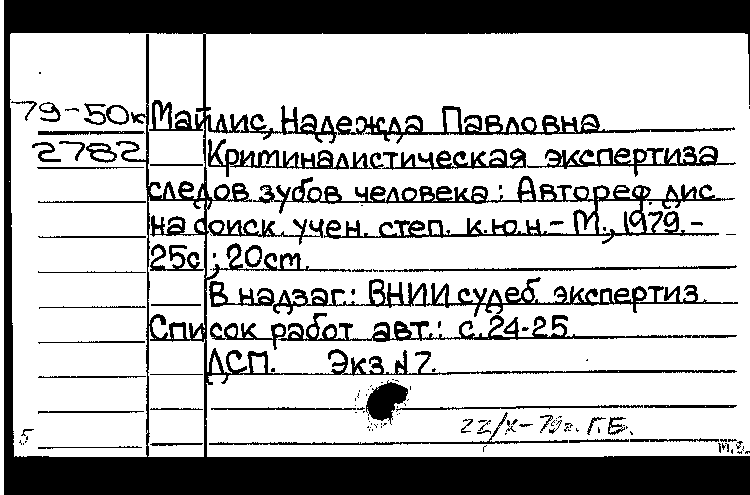 79-50к Майлис, Надежда Павловна
2782 Криминалистическая экспертиза
следов зубов человека: Автореф. дис
на соиск. учен. степ. к.ю.н.- М., 1979.-
25с.; 20см.
В надзаг.: ВНИИ судеб. экспертиз.
Список работ авт.: с.24-25.
ДСП. Экз.№7.
22/X-79г. Г.Б.
5